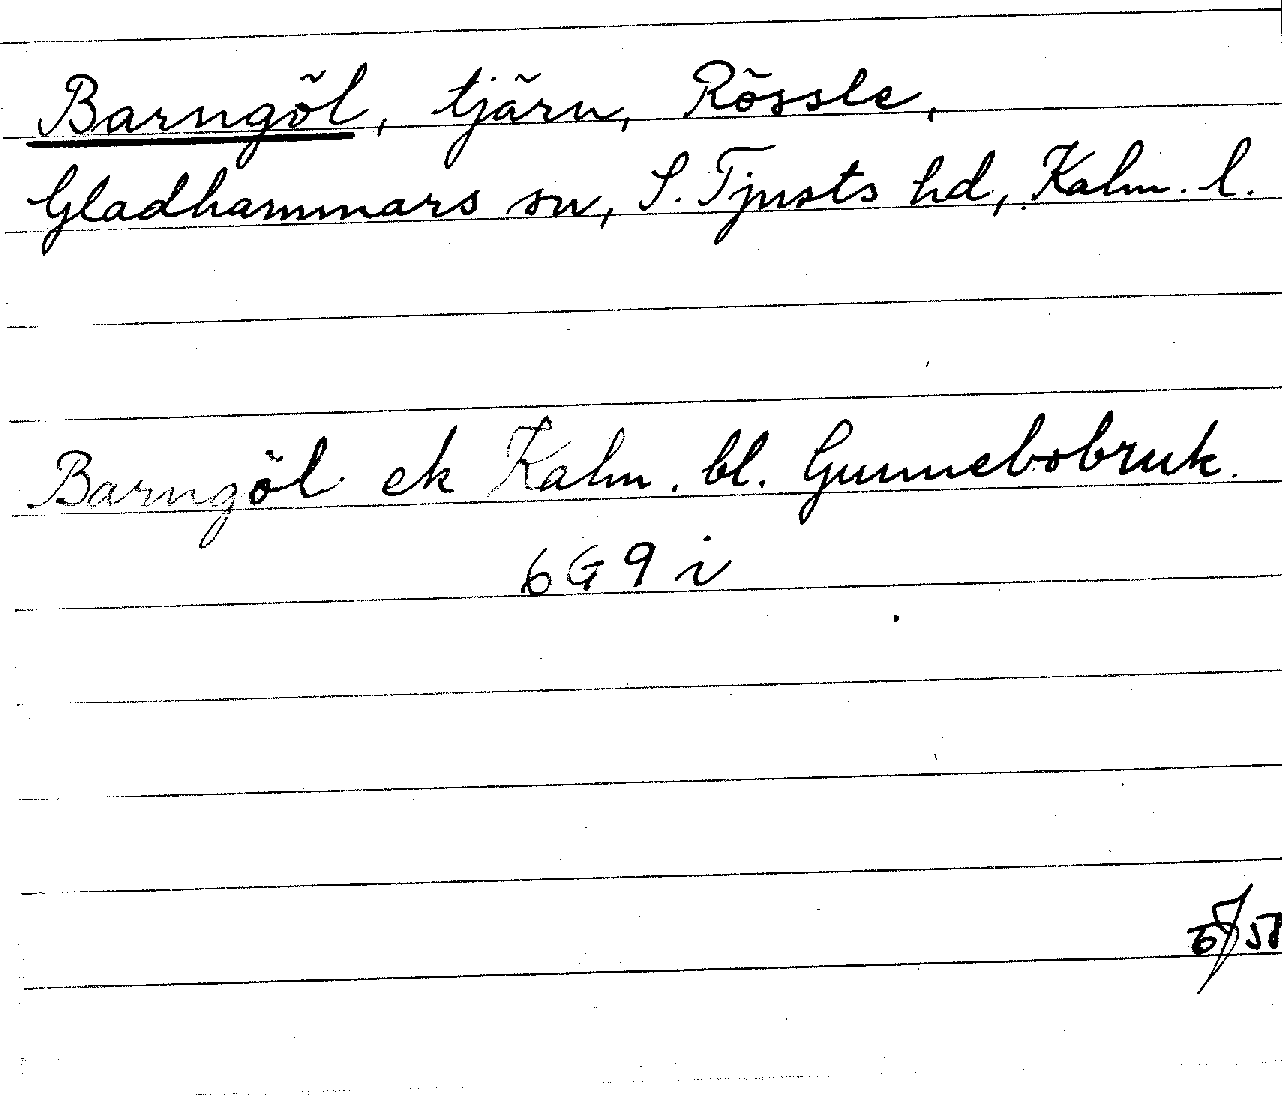 Barngöl, tjärn, Rössle,
Gladhammars sn, S. Tjusts hd, Kalm. l.
Barngöl ek Kalm. bl. Gunnebobruk.
6G9i